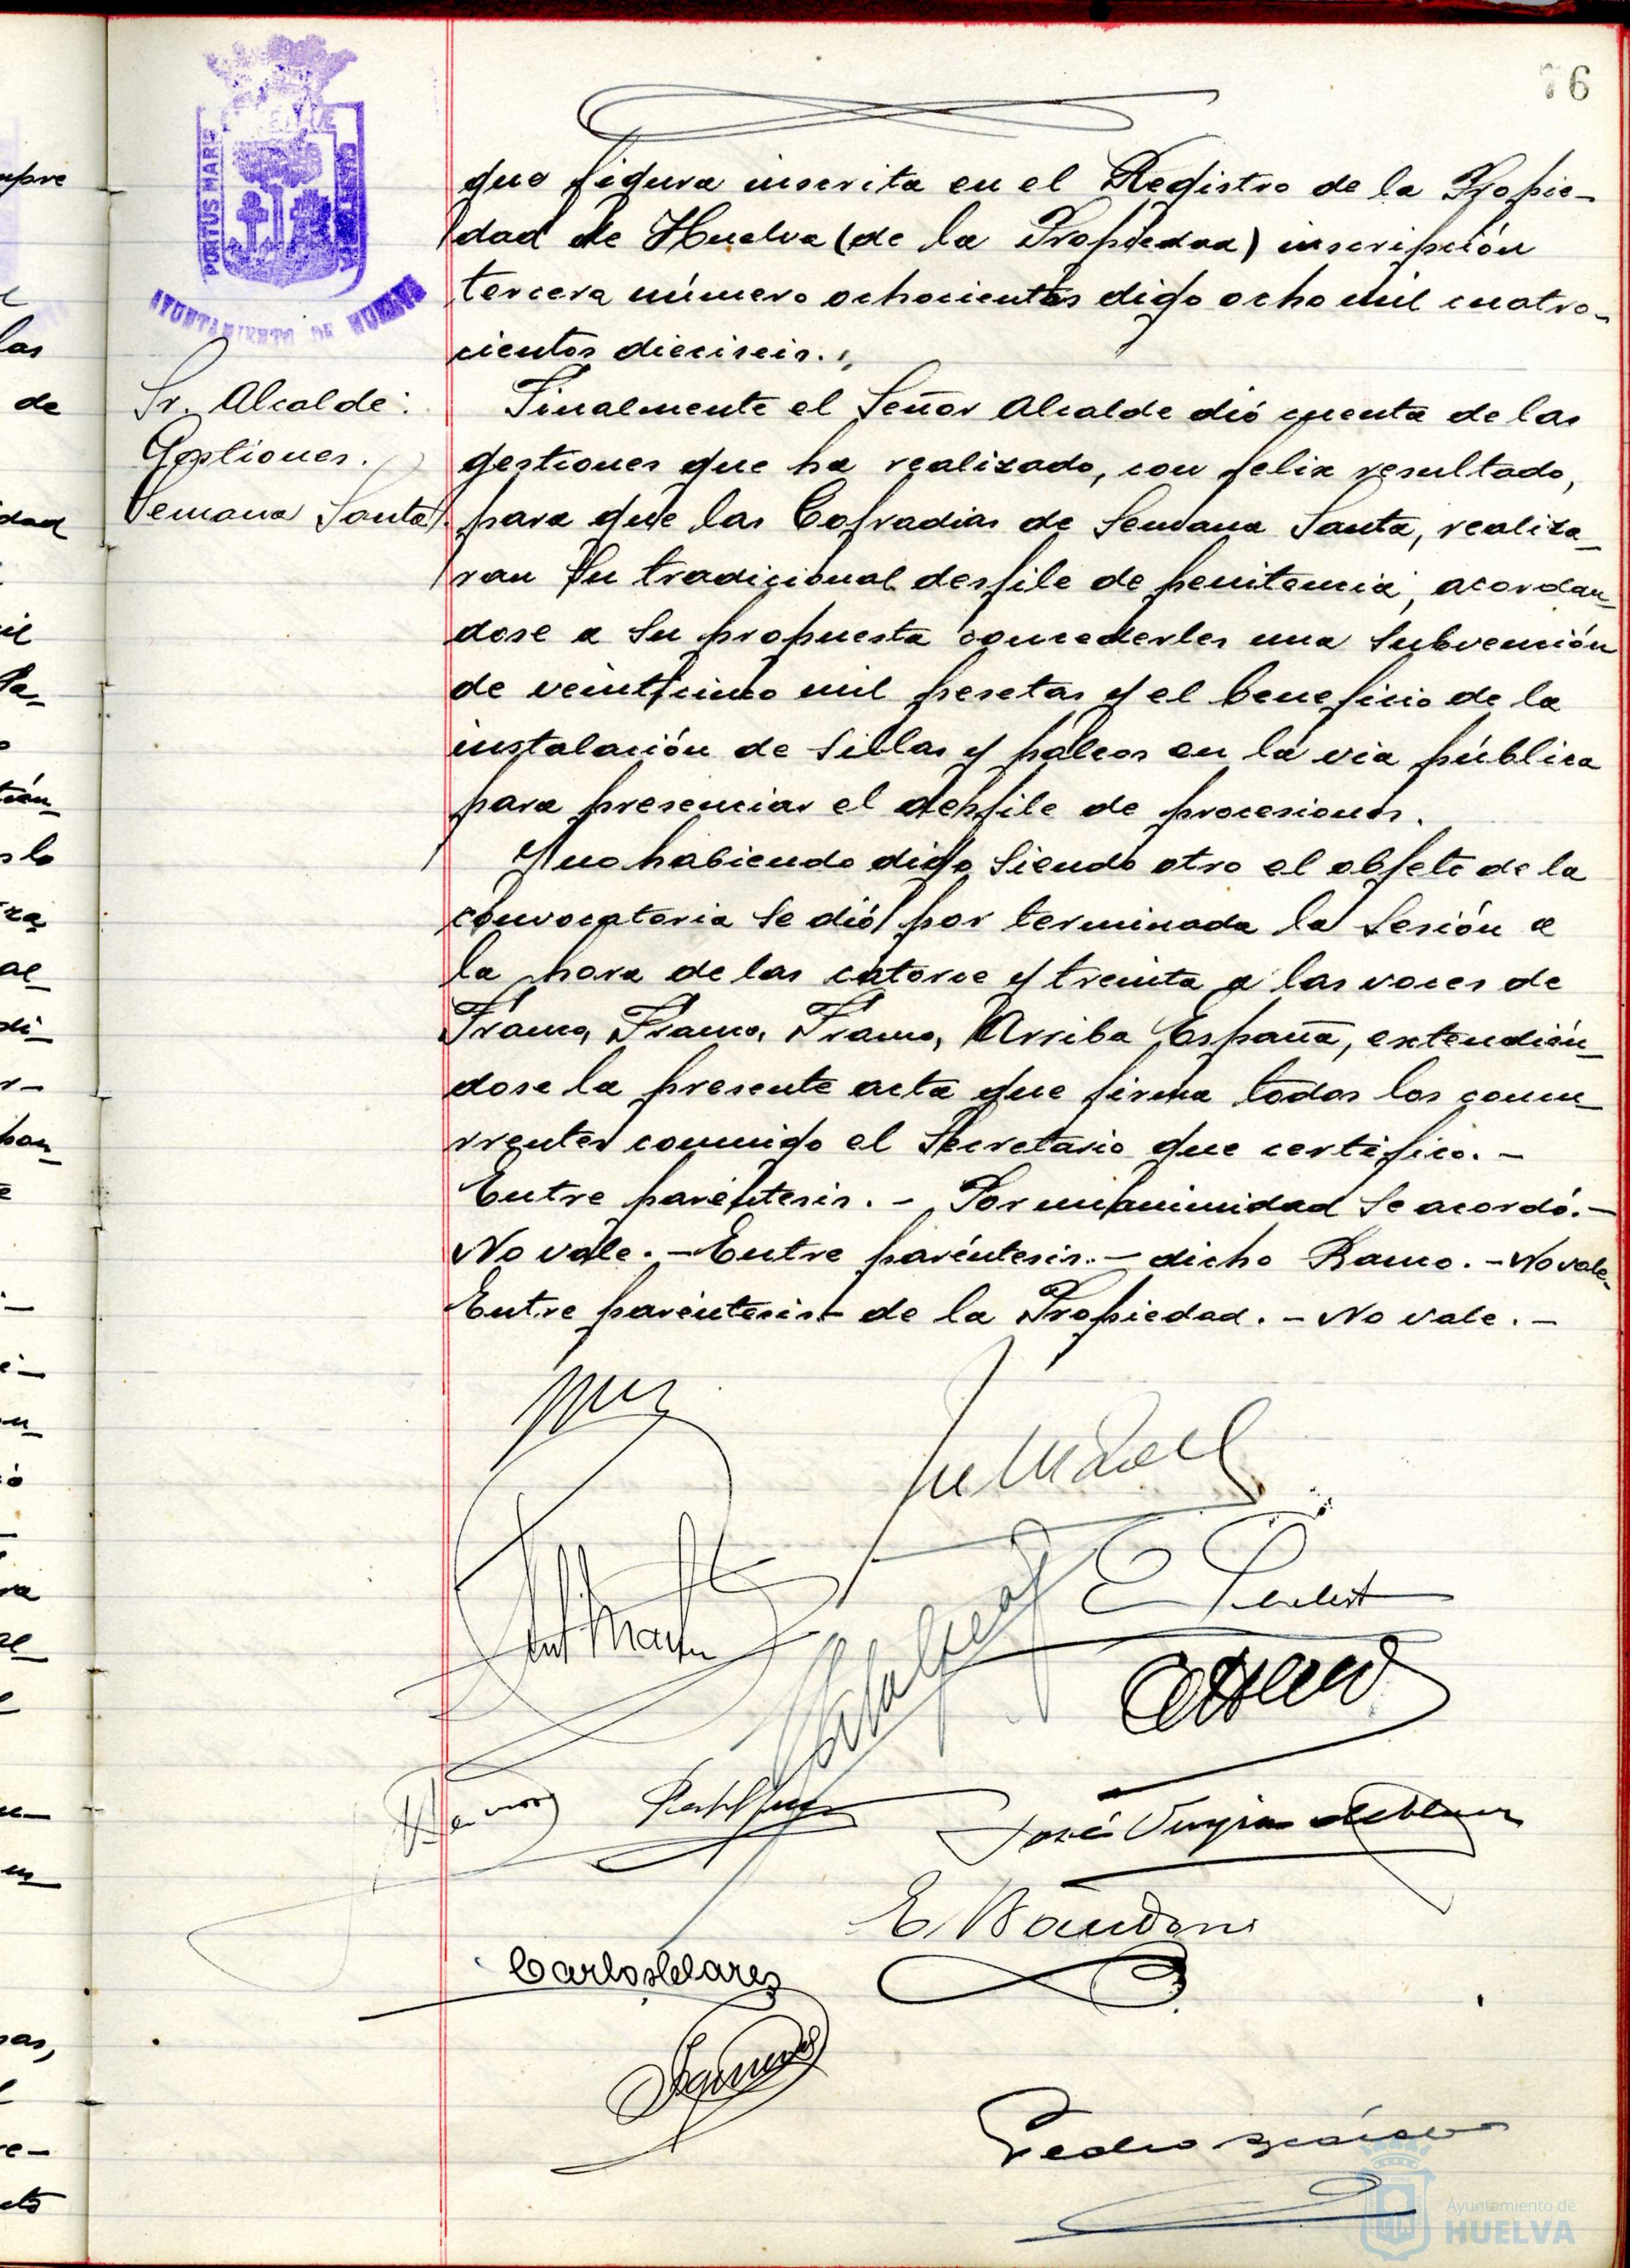 76
PORTUS MARIS
AYUNTAMIENTO DE HUELVA
que figura inscrita en el Registro de la Propie-
dad de Huelva (de la Propiedad) inscripción
tercera número ochocientos digo ocho mil cuatro-
cientos dieciseis.
Sr. Alcalde:
Gestiones.
Semana Santa.
Finalmente el Señor Alcalde dió cuenta de las
gestiones que ha realizado, con felix resultado,
para que las Cofradias de Semana Santa, realiza-
ran su tradicional desfile de penitencia, acordan-
dose a su propuesta concederles una subvención
de veinticinco mil pesetas y el beneficio de la
instalación de sillas y palcos en la via pública
para presenciar el desfile de procesiones.
Y no habiendo digo siendo otro el objeto de la
convocatoria se dió por terminada la sesión a
la hora de las catorce y treinta a las voces de
Franco, Franco, Franco, Arriba España, extendién-
dose la presente acta que firma todos los concu-
rrentes conmigo el Secretario que certifico. -
Entre paréntesis. - Por unanimidad se acordó. -
No vale. - Entre paréntesis. - dicho Ramo. - No vale.
Entre paréntesis - de la Propiedad. - No vale. -
José
E.
Carlos
Pedro
Ayuntamiento de
HUELVA